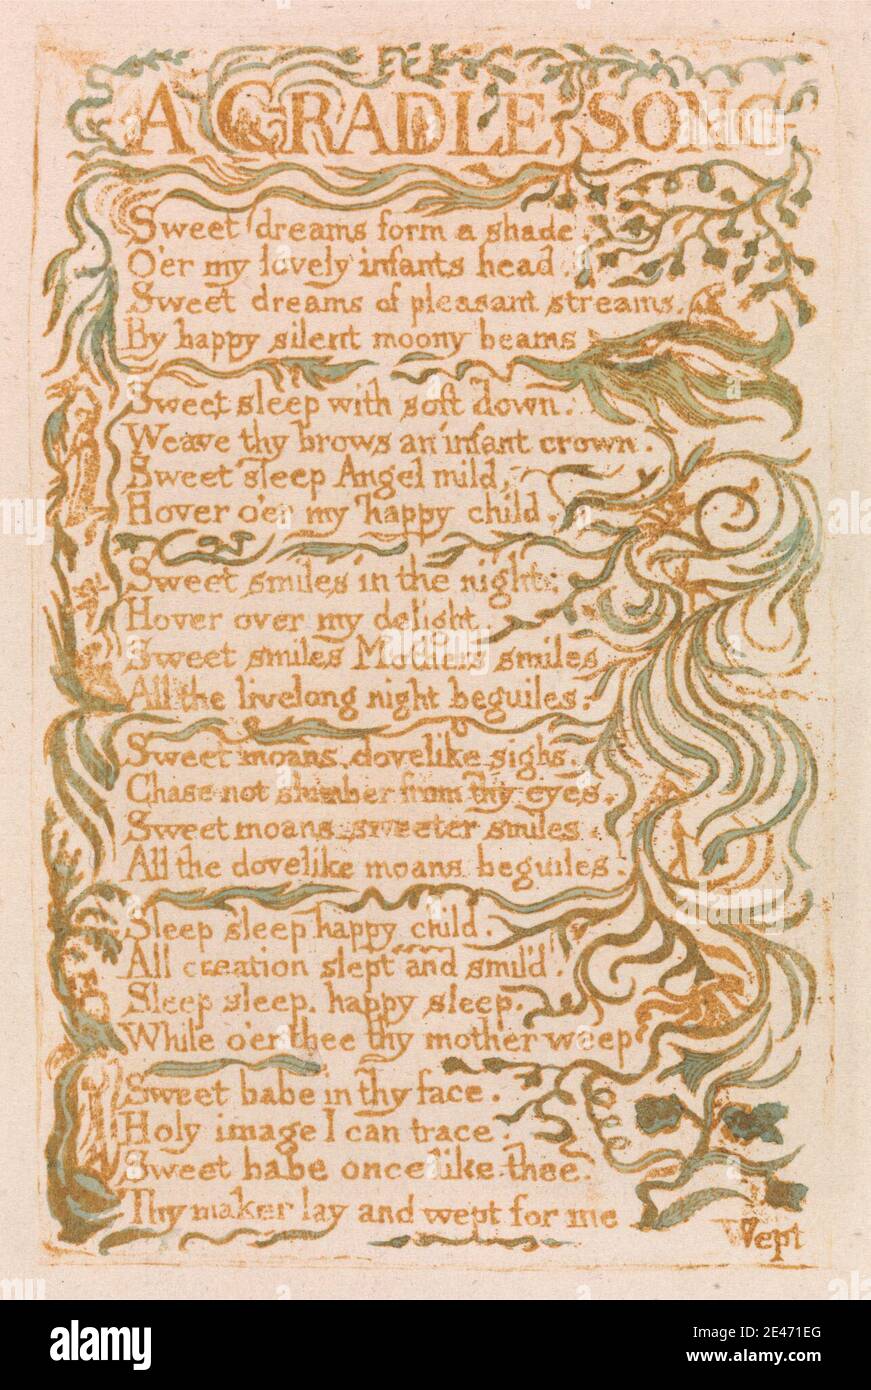 A CRADLE SONG
Sweet dreams form a shade
O'er my lovely infants head.
Sweet dreams of pleasant streams,
By happy silent moony beams
Sweet sleep with soft down.
Weave thy brows an infant crown.
Sweet sleep Angel mild,
Hover o'er my happy child.
Sweet smiles in the night,
Hover over my delight.
Sweet smiles Mothers smiles
All the livelong night beguiles.
Sweet moans, dovelike sighs,
Chase not slumber from thy eyes.
Sweet moans, sweeter smiles
All the dovelike moans beguiles.
Sleep sleep happy child.
All creation slept and smil'd.
Sleep sleep, happy sleep.
While o'er thee thy mother weep
Sweet babe in thy face.
Holy image I can trace.
Sweet babe once like thee.
Thy maker lay and wept for me
Wept
alamy
Image ID: 2E471EG
www.alamy.com